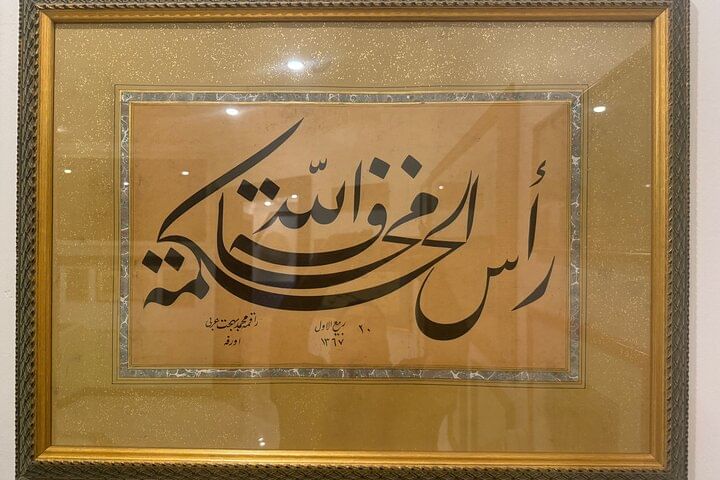 رأس الحكمة مخافة الله
راقمه محمد بهجت عربي
اورفه
٢٠ ربيع الاول
١٣٦٧